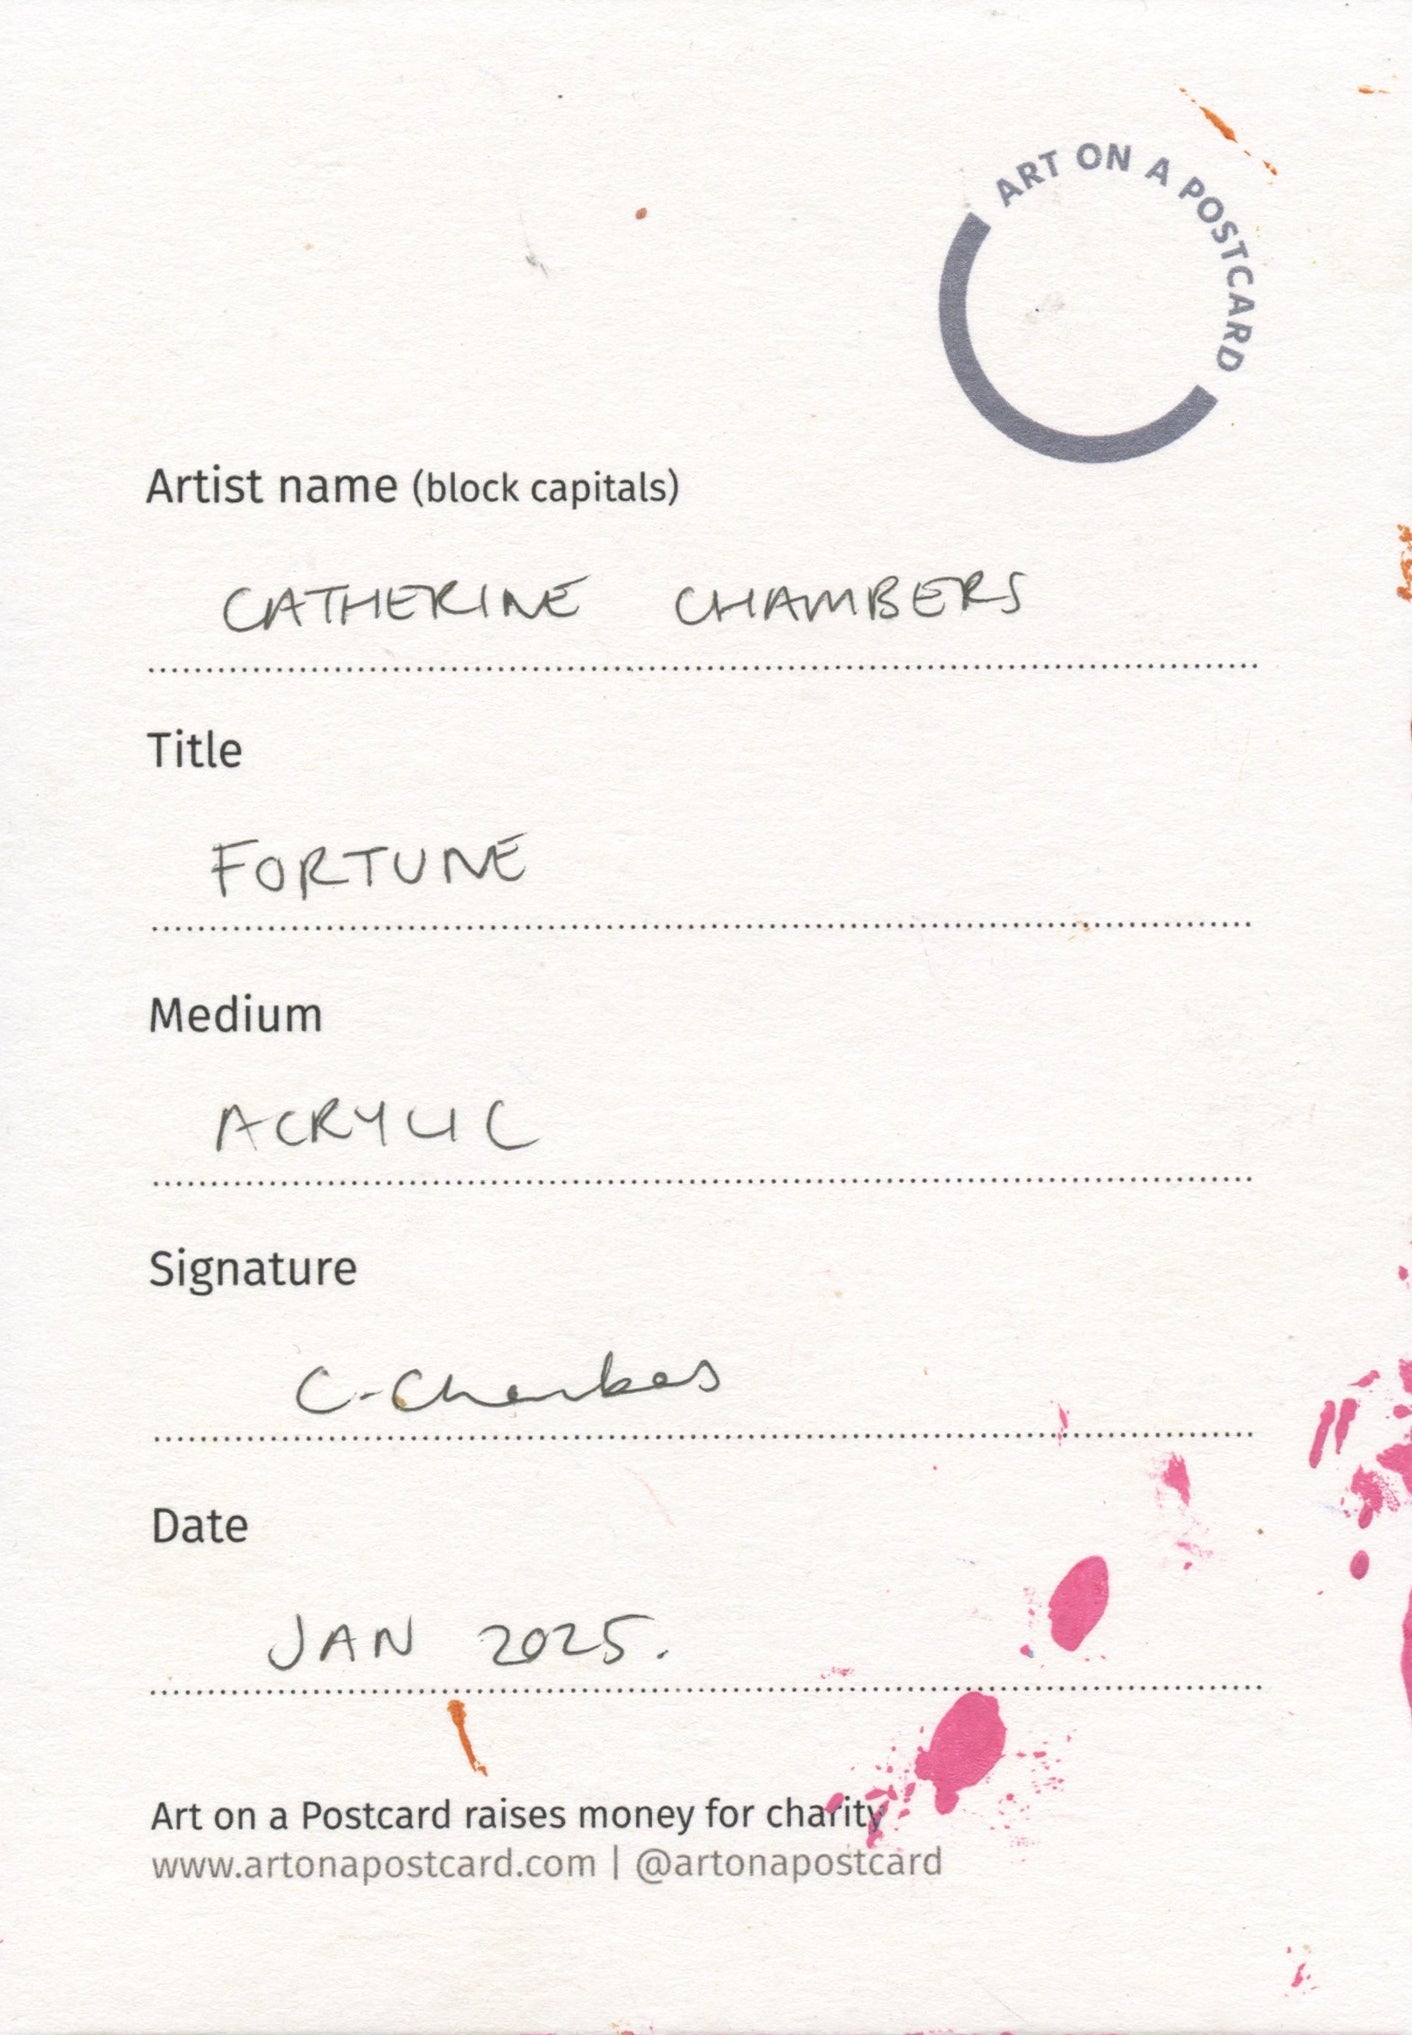 ART ON A POSTCARD
Artist name (block capitals)
CATHERINE CHAMBERS
Title
FORTUNE
Medium
ACRYLIC
Signature
C-Chambers
Date
JAN 2025.
Art on a Postcard raises money for charity
www.artonapostcard.com | @artonapostcard